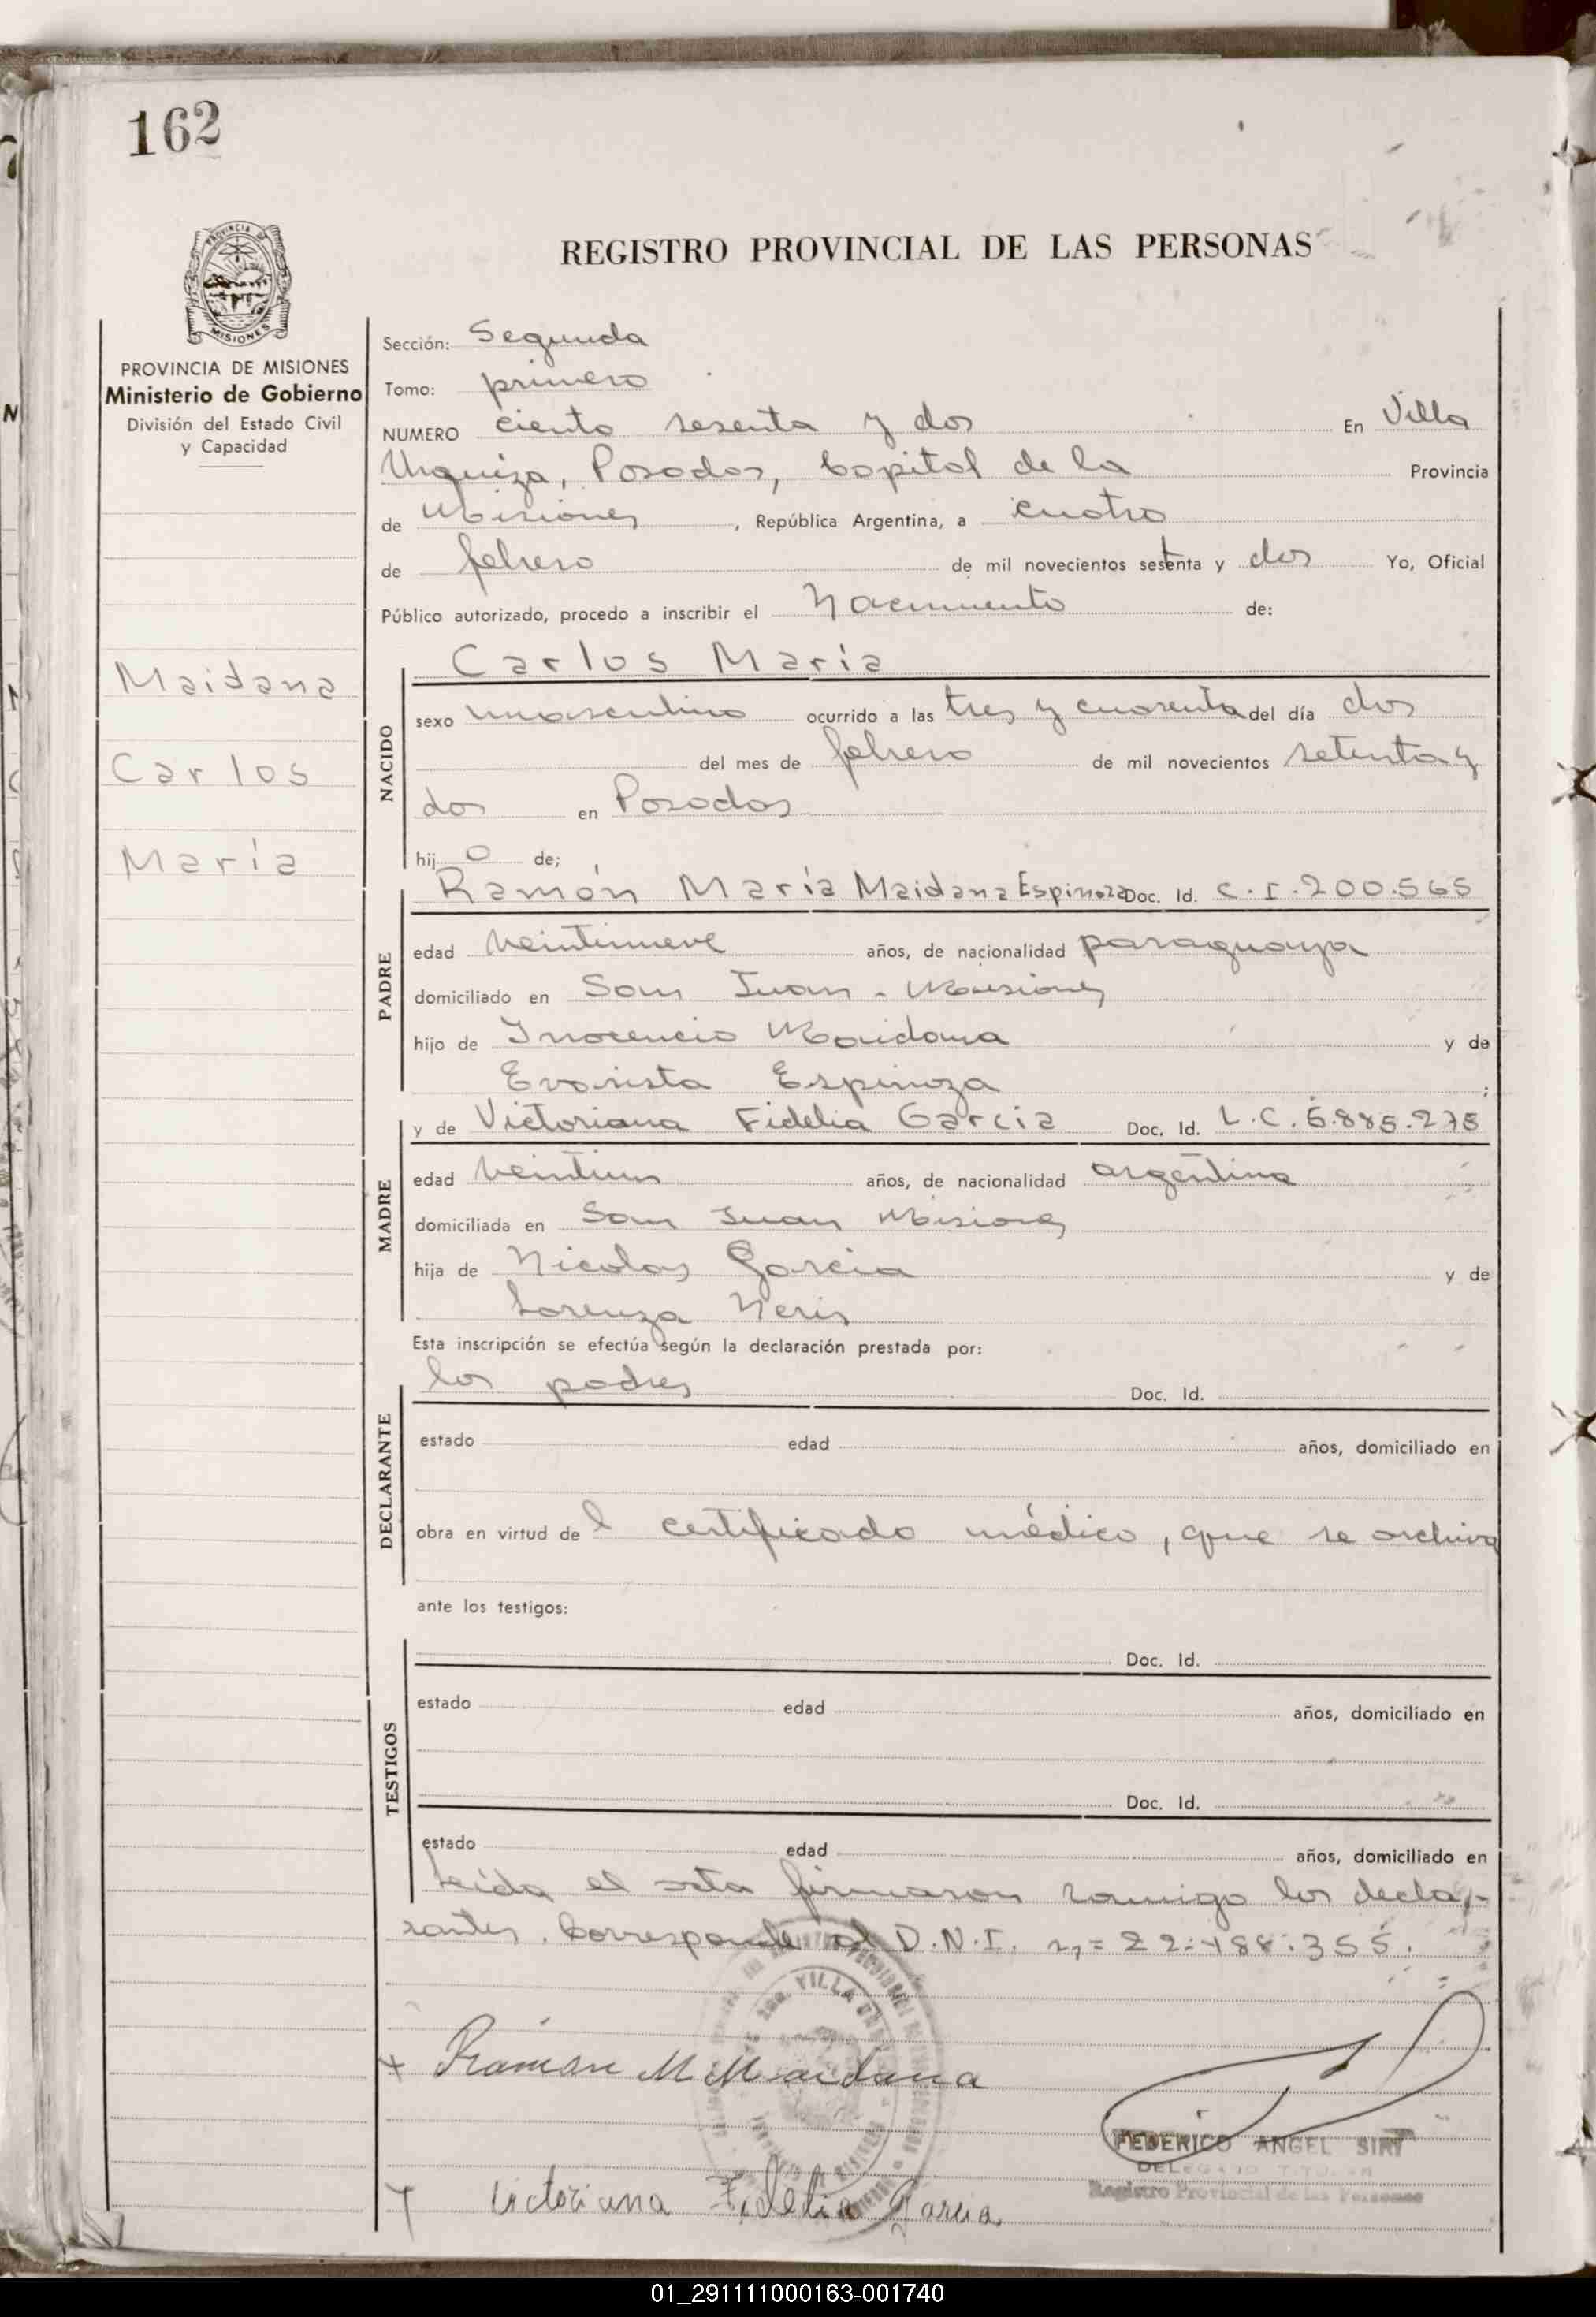 162
REGISTRO PROVINCIAL DE LAS PERSONAS
MISIONES
PROVINCIA DE MISIONES
Ministerio de Gobierno
División del Estado Civil
y Capacidad
Maidana
Carlos
María
Sección: Segunda
Tomo: primero
NUMERO ciento sesenta y dos En Villa
Urquiza, Posadas, Capital de la Provincia
de Misiones, República Argentina, a cuatro
de febrero de mil novecientos setenta y dos Yo, Oficial
Público autorizado, procedo a inscribir el Nacimiento de:
NACIDO
Carlos María
sexo masculino ocurrido a las tres y cuarenta del día dos
del mes de febrero de mil novecientos setenta y
dos en Posadas
hij o de;
PADRE
Ramón María Maidana Espinoza Doc. Id. C.I. 200.565
edad veintinueve años, de nacionalidad paraguaya
domiciliado en San Juan - Misiones
hijo de Inocencio Maidana y de
Evarista Espinoza ;
MADRE
y de Victoriana Fidelia García Doc. Id. L.C. 6.885.278
edad veintiun años, de nacionalidad argentina
domiciliada en San Juan Misiones
hija de Nicolas Garcia y de
Lorenza Neris
Esta inscripción se efectúa según la declaración prestada por:
DECLARANTE
los padres Doc. Id.
estado edad años, domiciliado en
obra en virtud de l certificado médico, que se archiva
ante los testigos:
TESTIGOS
Doc. Id.
estado edad años, domiciliado en
Doc. Id.
estado edad años, domiciliado en
Leída el acta firmaron conmigo los decla-
rantes. Corresponde al D.N.I. nº = 22.488.355.
VILLA
Ramón M Maidana
FEDERICO ANGEL SIRI
DELEGADO TITULAR
Registro Provincial de las Personas
Victoriana Fidelia Garcia
01_291111000163-001740